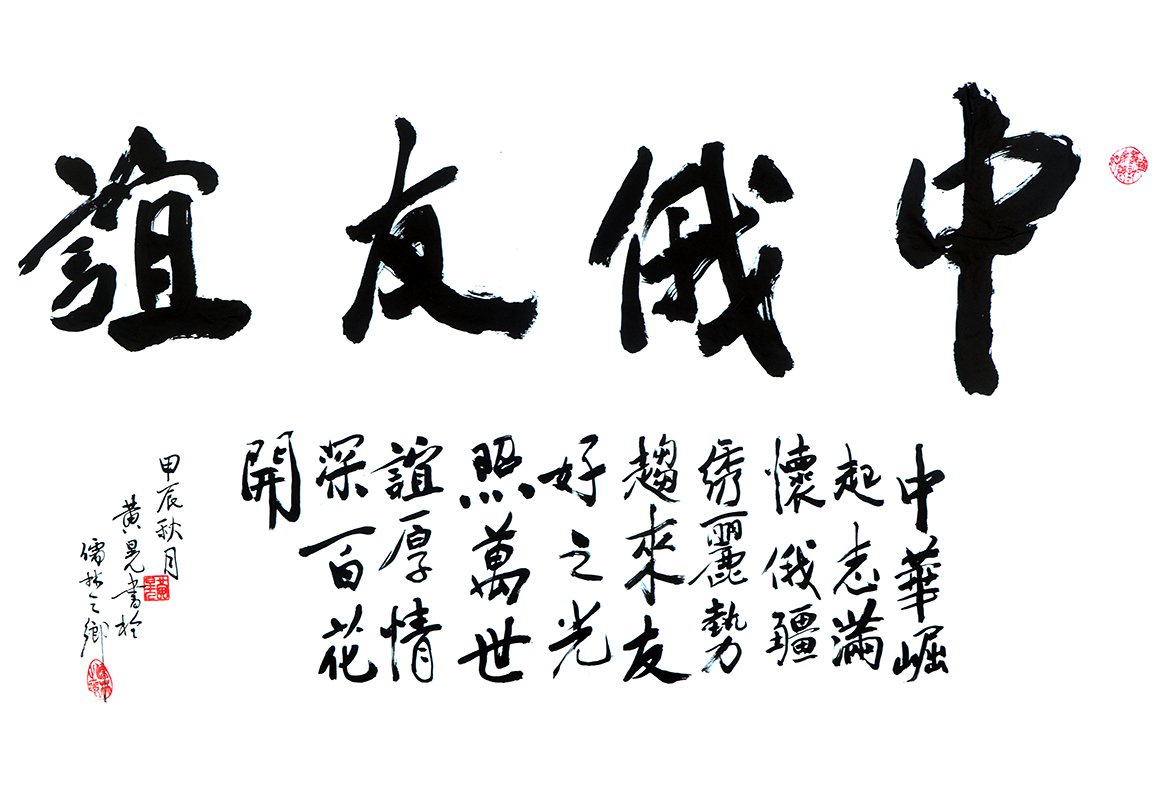 中俄友誼
中華崛
起志滿
懷俄疆
绣麗勢
趨來友
好之光
照萬世
誼厚情
深百花
開
甲辰秋月
黃晃書於
儒林之鄉